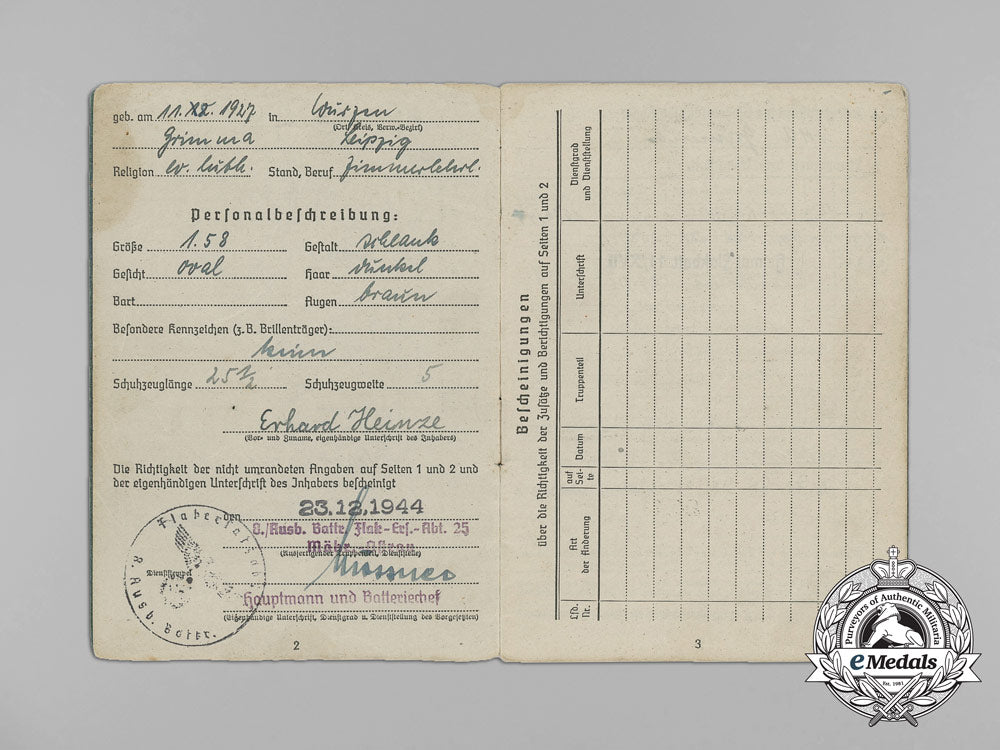 geb. am 11. XII. 1927 in Wurzen
(Ort, Kreis, Verw.-Bezirk)
Grimma Leipzig
Religion ev. luth. Stand, Beruf Zimmerlehrl.
Personalbeschreibung:
Größe 1.58 Gestalt schlank
Gesicht oval Haar dunkel
Bart Augen braun
Besondere Kennzeichen (z.B. Brillenträger):
keine
Schuhzeuglänge 25 1/2 Schuhzeugweite 5
Erhard Heinze
(Vor- und Zuname, eigenhändige Unterschrift des Inhabers)
Die Richtigkeit der nicht umrandeten Angaben auf Seiten 1 und 2 und
der eigenhändigen Unterschrift des Inhabers bescheinigt
den 23.12.1944
8./Ausb. Battr. Flak-Ers.-Abt. 25
Mähr.
(Ausfertigender Truppenteil, Dienststelle)
Dienststempel
8. Ausb. Battr.
Hauptmann und Batteriechef
(Eigenhändige Unterschrift, Dienstgrad u. Dienststellung des Vorgesetzten)
2
Bescheinigungen
über die Richtigkeit der Zusätze und Berichtigungen auf Seiten 1 und 2
Lfd. Nr.
Art der Änderung
auf Sei-te
Datum
Truppenteil
Unterschrift
Dienstgrad und Dienststellung
3
Purveyors of Authentic Militaria
eMedals
Est. 1981